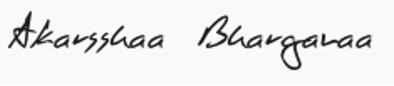 Akarsshaa Bhargavaa